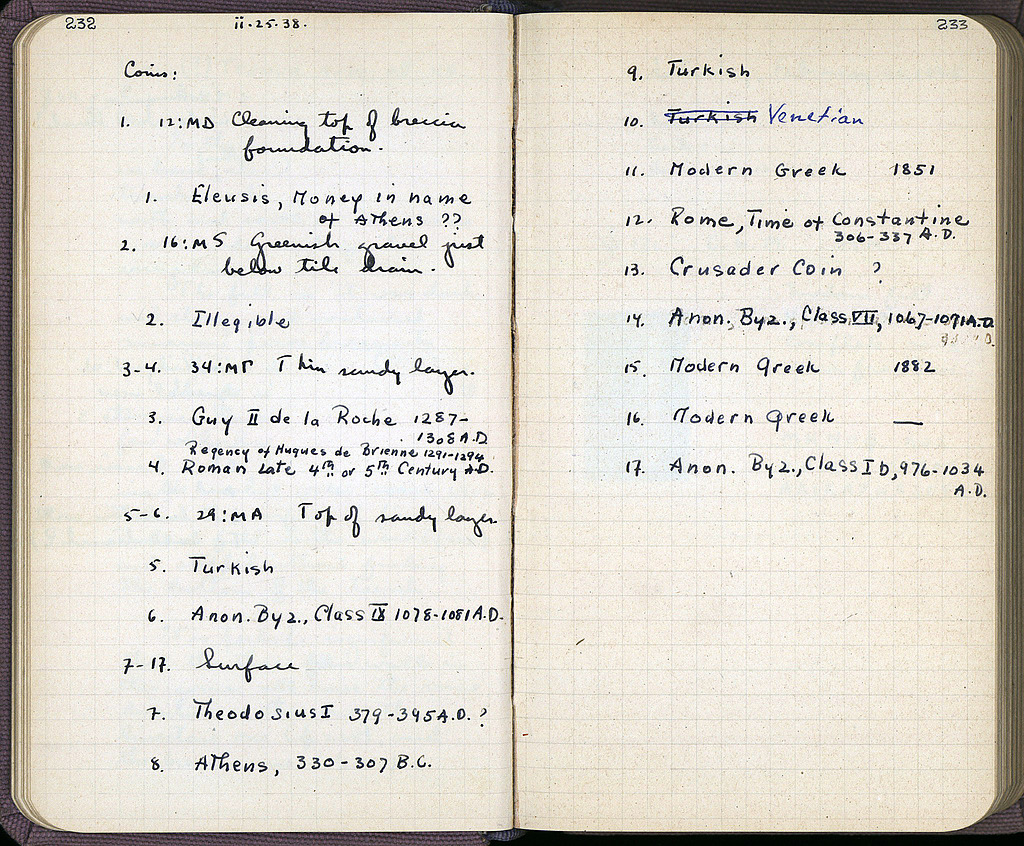 232
ii.25.38.
Coins:
1. 12:MD Cleaning top of breccia
foundation.
1. Eleusis, Money in name
of Athens ??
2. 16:MS Greenish gravel just
below tile drain.
2. Illegible
3-4. 34:MΓ Thin sandy layer.
3. Guy II de la Roche 1287-
1308 A.D.
Regency of Hugues de Brienne 1291-1294
4. Roman Late 4th or 5th Century A.D.
5-6. 29:MA Top of sandy layer
5. Turkish
6. Anon. Byz., Class IX 1078-1081 A.D.
7-17. Surface
7. Theodosius I 379-395 A.D. ?
8. Athens, 330-307 B.C.
233
9. Turkish
10. Turkish Venetian
11. Modern Greek 1851
12. Rome, Time of Constantine
306-337 A.D.
13. Crusader Coin ?
14. Anon. Byz., Class VII, 1067-1071 A.D.
15. Modern Greek 1882
16. Modern Greek —
17. Anon. Byz., Class I b, 976-1034
A.D.